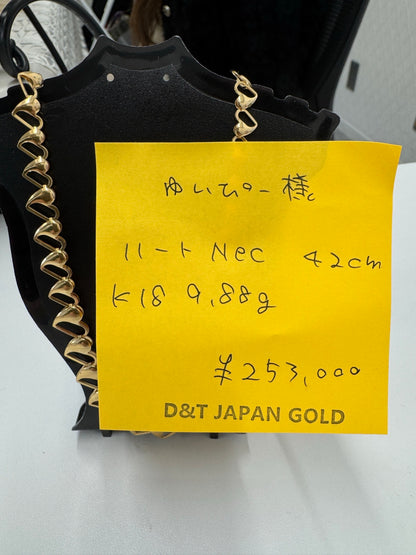 ゆいぴー様
ハート Nec 42cm
K18 9,88g
¥253,000
D&T JAPAN GOLD